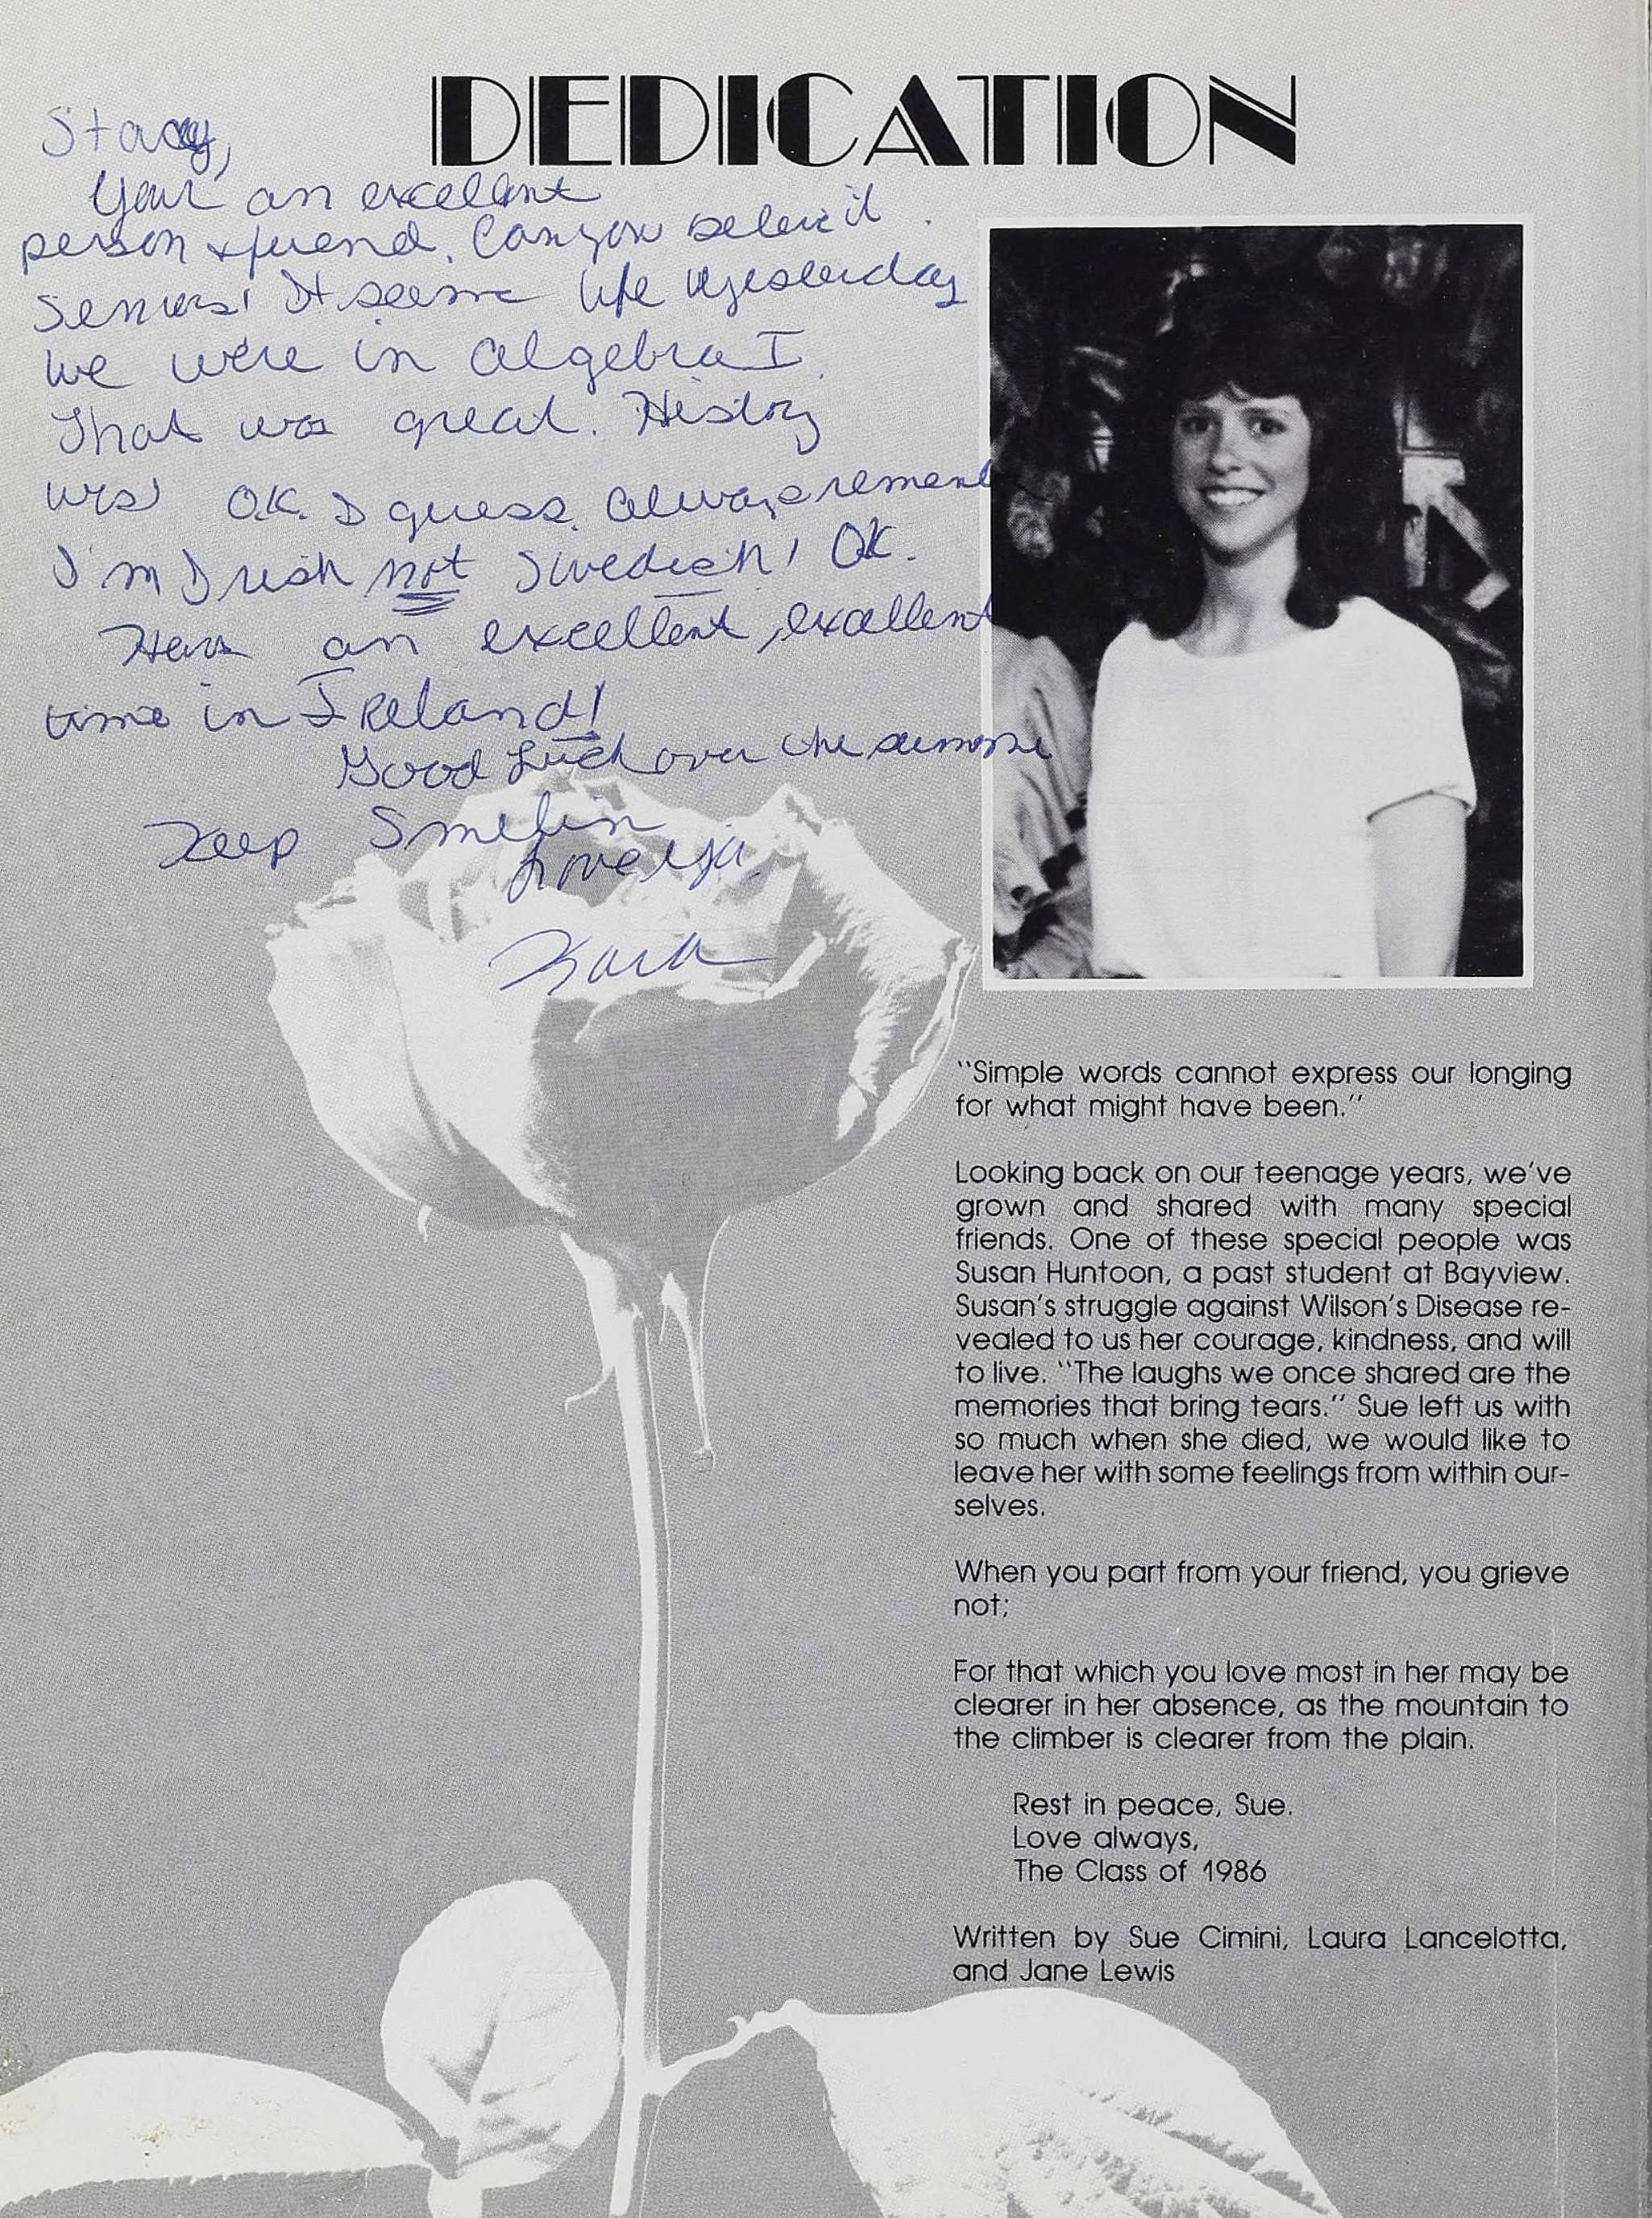 DEDICATION
Stacy,
Your an excellent
person + friend. Can you beleive it
Seniors! It seems like yesterday
we were in algebra I.
That was great. History
was OK. I guess. Always rememb
I'm Irish not Swedish! OK.
Have an excellent, excellent
time in Ireland!
Good Luck over the summer
Keep Smilin
Love ya
Kara
"Simple words cannot express our longing
for what might have been."
Looking back on our teenage years, we've
grown and shared with many special
friends. One of these special people was
Susan Huntoon, a past student at Bayview.
Susan's struggle against Wilson's Disease re-
vealed to us her courage, kindness, and will
to live. "The laughs we once shared are the
memories that bring tears." Sue left us with
so much when she died, we would like to
leave her with some feelings from within our-
selves.
When you part from your friend, you grieve
not;
For that which you love most in her may be
clearer in her absence, as the mountain to
the climber is clearer from the plain.
Rest in peace, Sue.
Love always,
The Class of 1986
Written by Sue Cimini, Laura Lancelotta,
and Jane Lewis